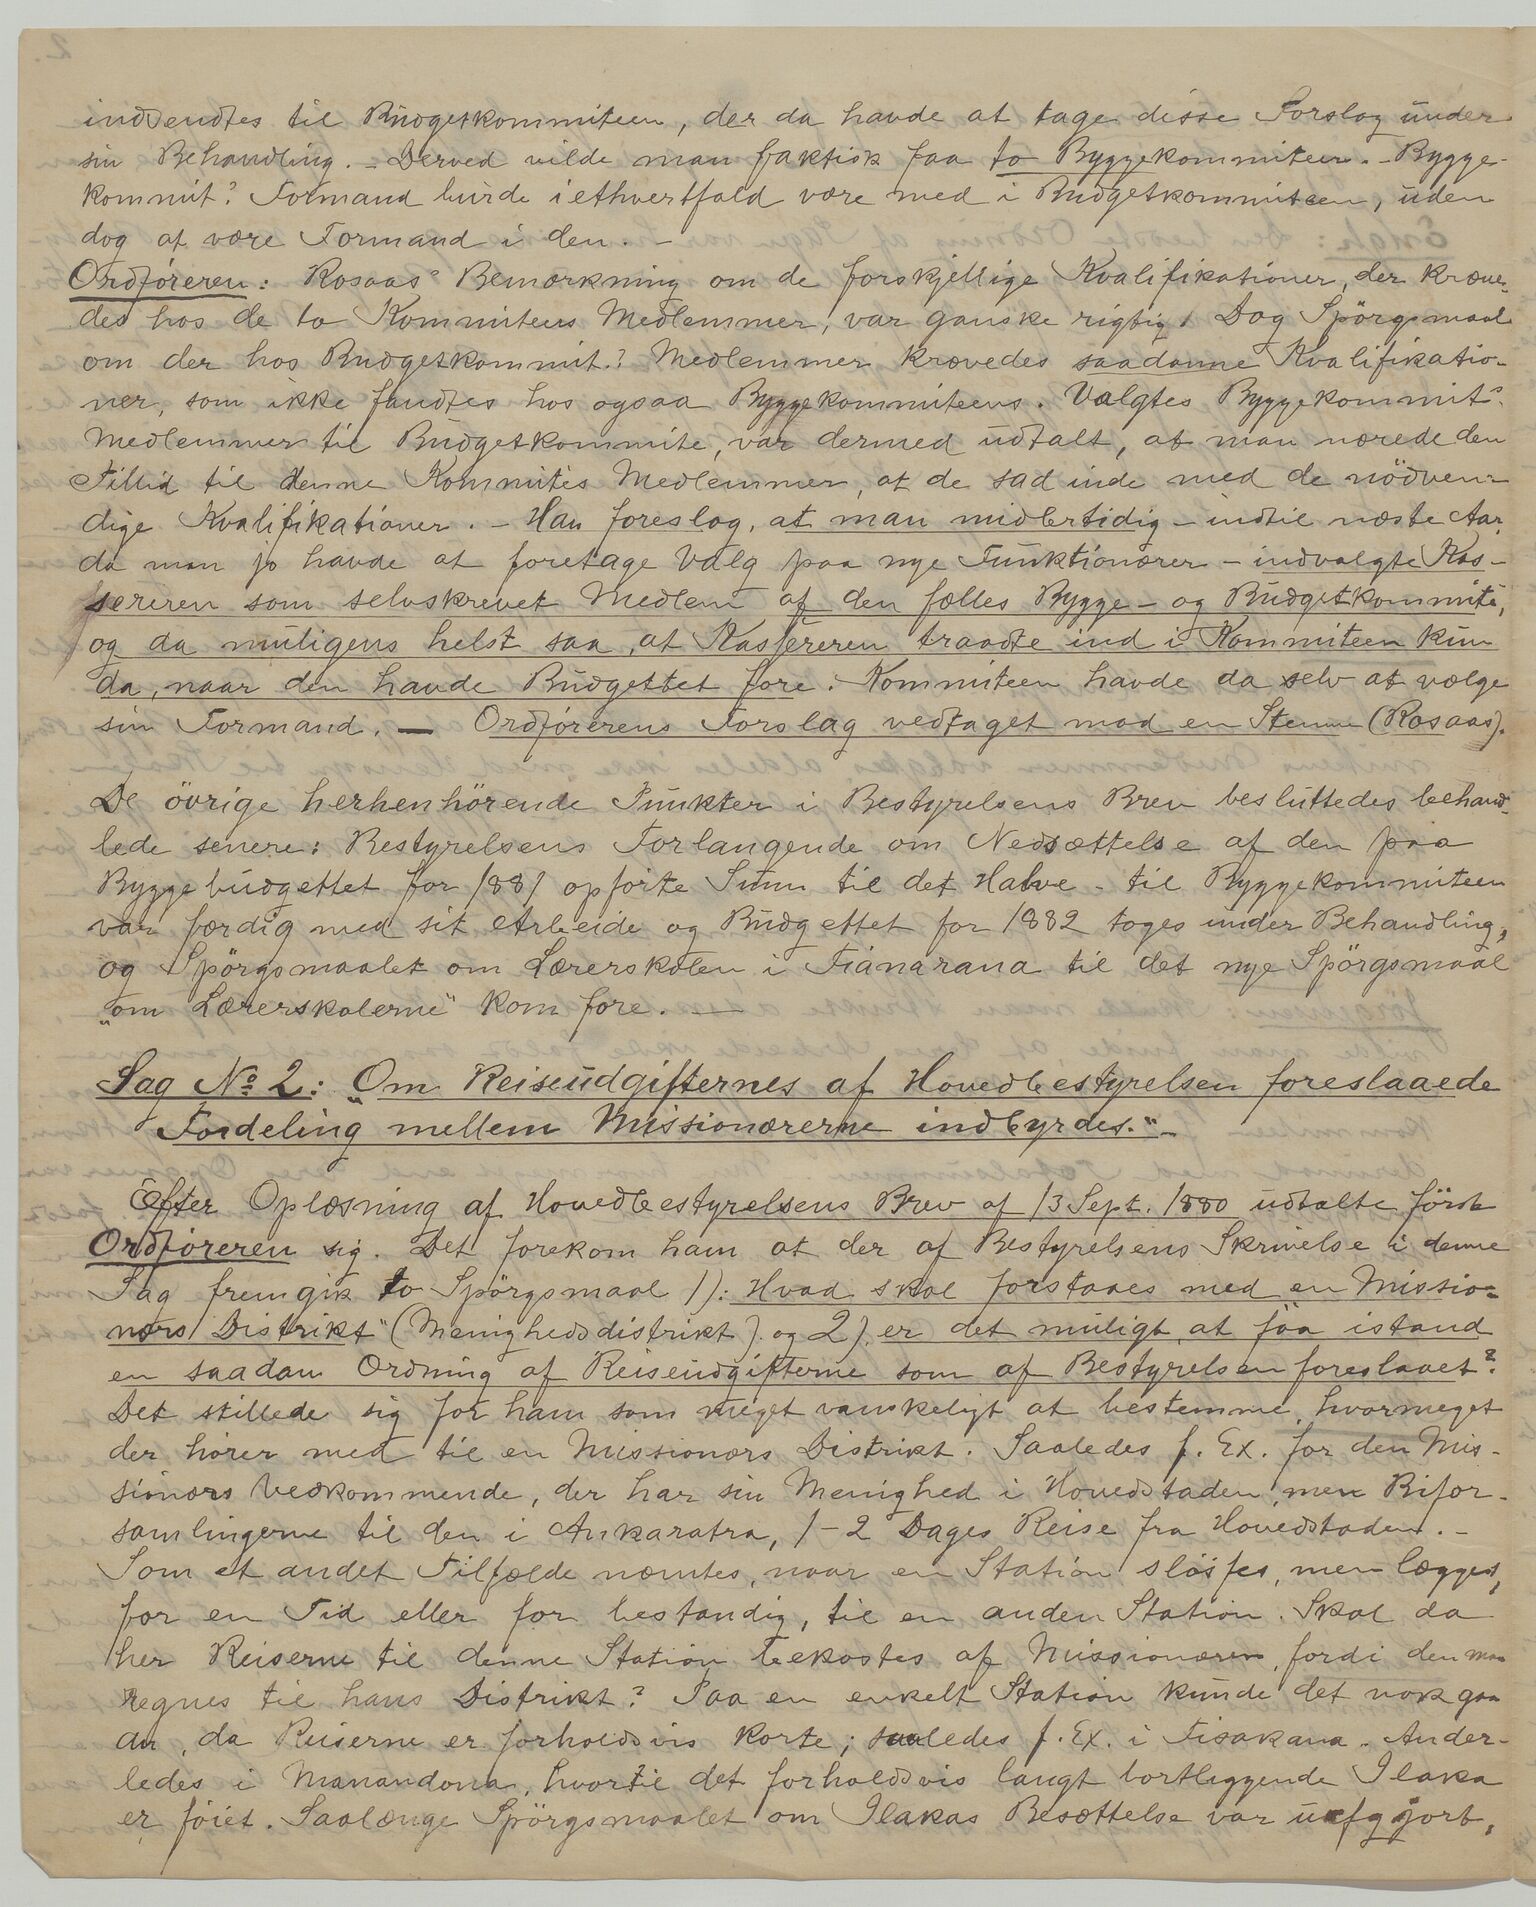 indsendtes til Budgetkommiteen, der da havde at tage disse Forslag under
sin Behandling. – Derved vilde man faktisk faa to Byggekommiteer. – Bygge-
kommit? Formand burde i ethvertfald være med i Budgetkommiteen, uden
dog at være Formand i den. –
Ordføreren: Rosaas' Bemærkning om de forskjellige Kvalifikationer, der kræve-
des hos de to Kommiteers Medlemmer, var ganske rigtig. Dog Spörgsmaal
om der hos Budgetkommit.? Medlemmer krævedes saadanne Kvalifikatio-
ner, som ikke fandtes hos ogsaa Byggekommiteens. Valgtes Byggekommit?
Medlemmer til Budgetkommite, var dermed udtalt, at man nærede den
Tillid til denne Kommites Medlemmer, at de sad inde med de nödven-
dige Kvalifikationer. – Han foreslog, at man midlertidig – indtil næste Aar,
da man jo havde at foretage Valg paa nye Funktionærer – indvalgte Kas-
sereren som selvskrevet Medlem af den fælles Bygge- og Budgetkommité,
og da muligens helst saa, at Kassereren traadte ind i Kommiteen kun
da, naar den havde Budgettet fore. Kommiteen havde da selv at vælge
sin Formand. — Ordførerens Forslag vedtaget mod en Stemme (Rosaas).
De övrige herhenhörende Punkter i Bestyrelsens Brev besluttedes behand-
lede senere: Bestyrelsens Forlangende om Nedsættelse af den paa
Byggebudgettet for 1881 opförte Sum til det Halve – til Byggekommiteen
var færdig med sit Arbeide og Budgettet for 1882 toges under Behandling,
og Spörgsmaalet om Lærerskolen i Fianarana til det nye Spörgsmaal
„om Lærerskolerne" kom fore. —
Sag No 2: „Om Reiseudgifternes af Hovedbestyrelsen foreslaaede
Fordeling mellem Missionærerne indbyrdes." –
Efter Oplæsning af Hovedbestyrelsens Brev af 13 Sept. 1880 udtalte först
Ordføreren sig. Det forekom ham at der af Bestyrelsens Skrivelse i denne
Sag fremgik to Spörgsmaal 1): Hvad skal forstaaes med en Missio-
nærs Distrikt" (Menighedsdistrikt) og 2) er det muligt at faa istand
en saadan Ordning af Reiseudgifterne som af Bestyrelsen foreslaaet?
Det stillede sig for ham som meget vanskeligt at bestemme, hvormeget
der hörer med til en Missionærs Distrikt. Saaledes f. Ex. for den Mis-
sionærs Vedkommende, der har sin Menighed i Hovedstaden, men Bifor-
samlingerne til den i Ankaratra, 1–2 Dages Reise fra Hovedstaden. –
Som et andet Tilfælde nævntes, naar en Station slöifes, men lægges,
for en Tid eller for bestandig, til en anden Station. Skal da
her Reiserne til denne Station bekostes af Missionæren, fordi den maa
regnes til hans Distrikt? Paa en enkelt Station kunde det nok gaa
an, da Reiserne er forholdsvis korte; saaledes f. Ex. i Fisakana. Ander-
ledes i Manandona, hvortil det forholdsvis langt bortliggende Ilaka
er föiet. Saalænge Spörgsmaalet om Ilakas Besættelse var uafgjort,